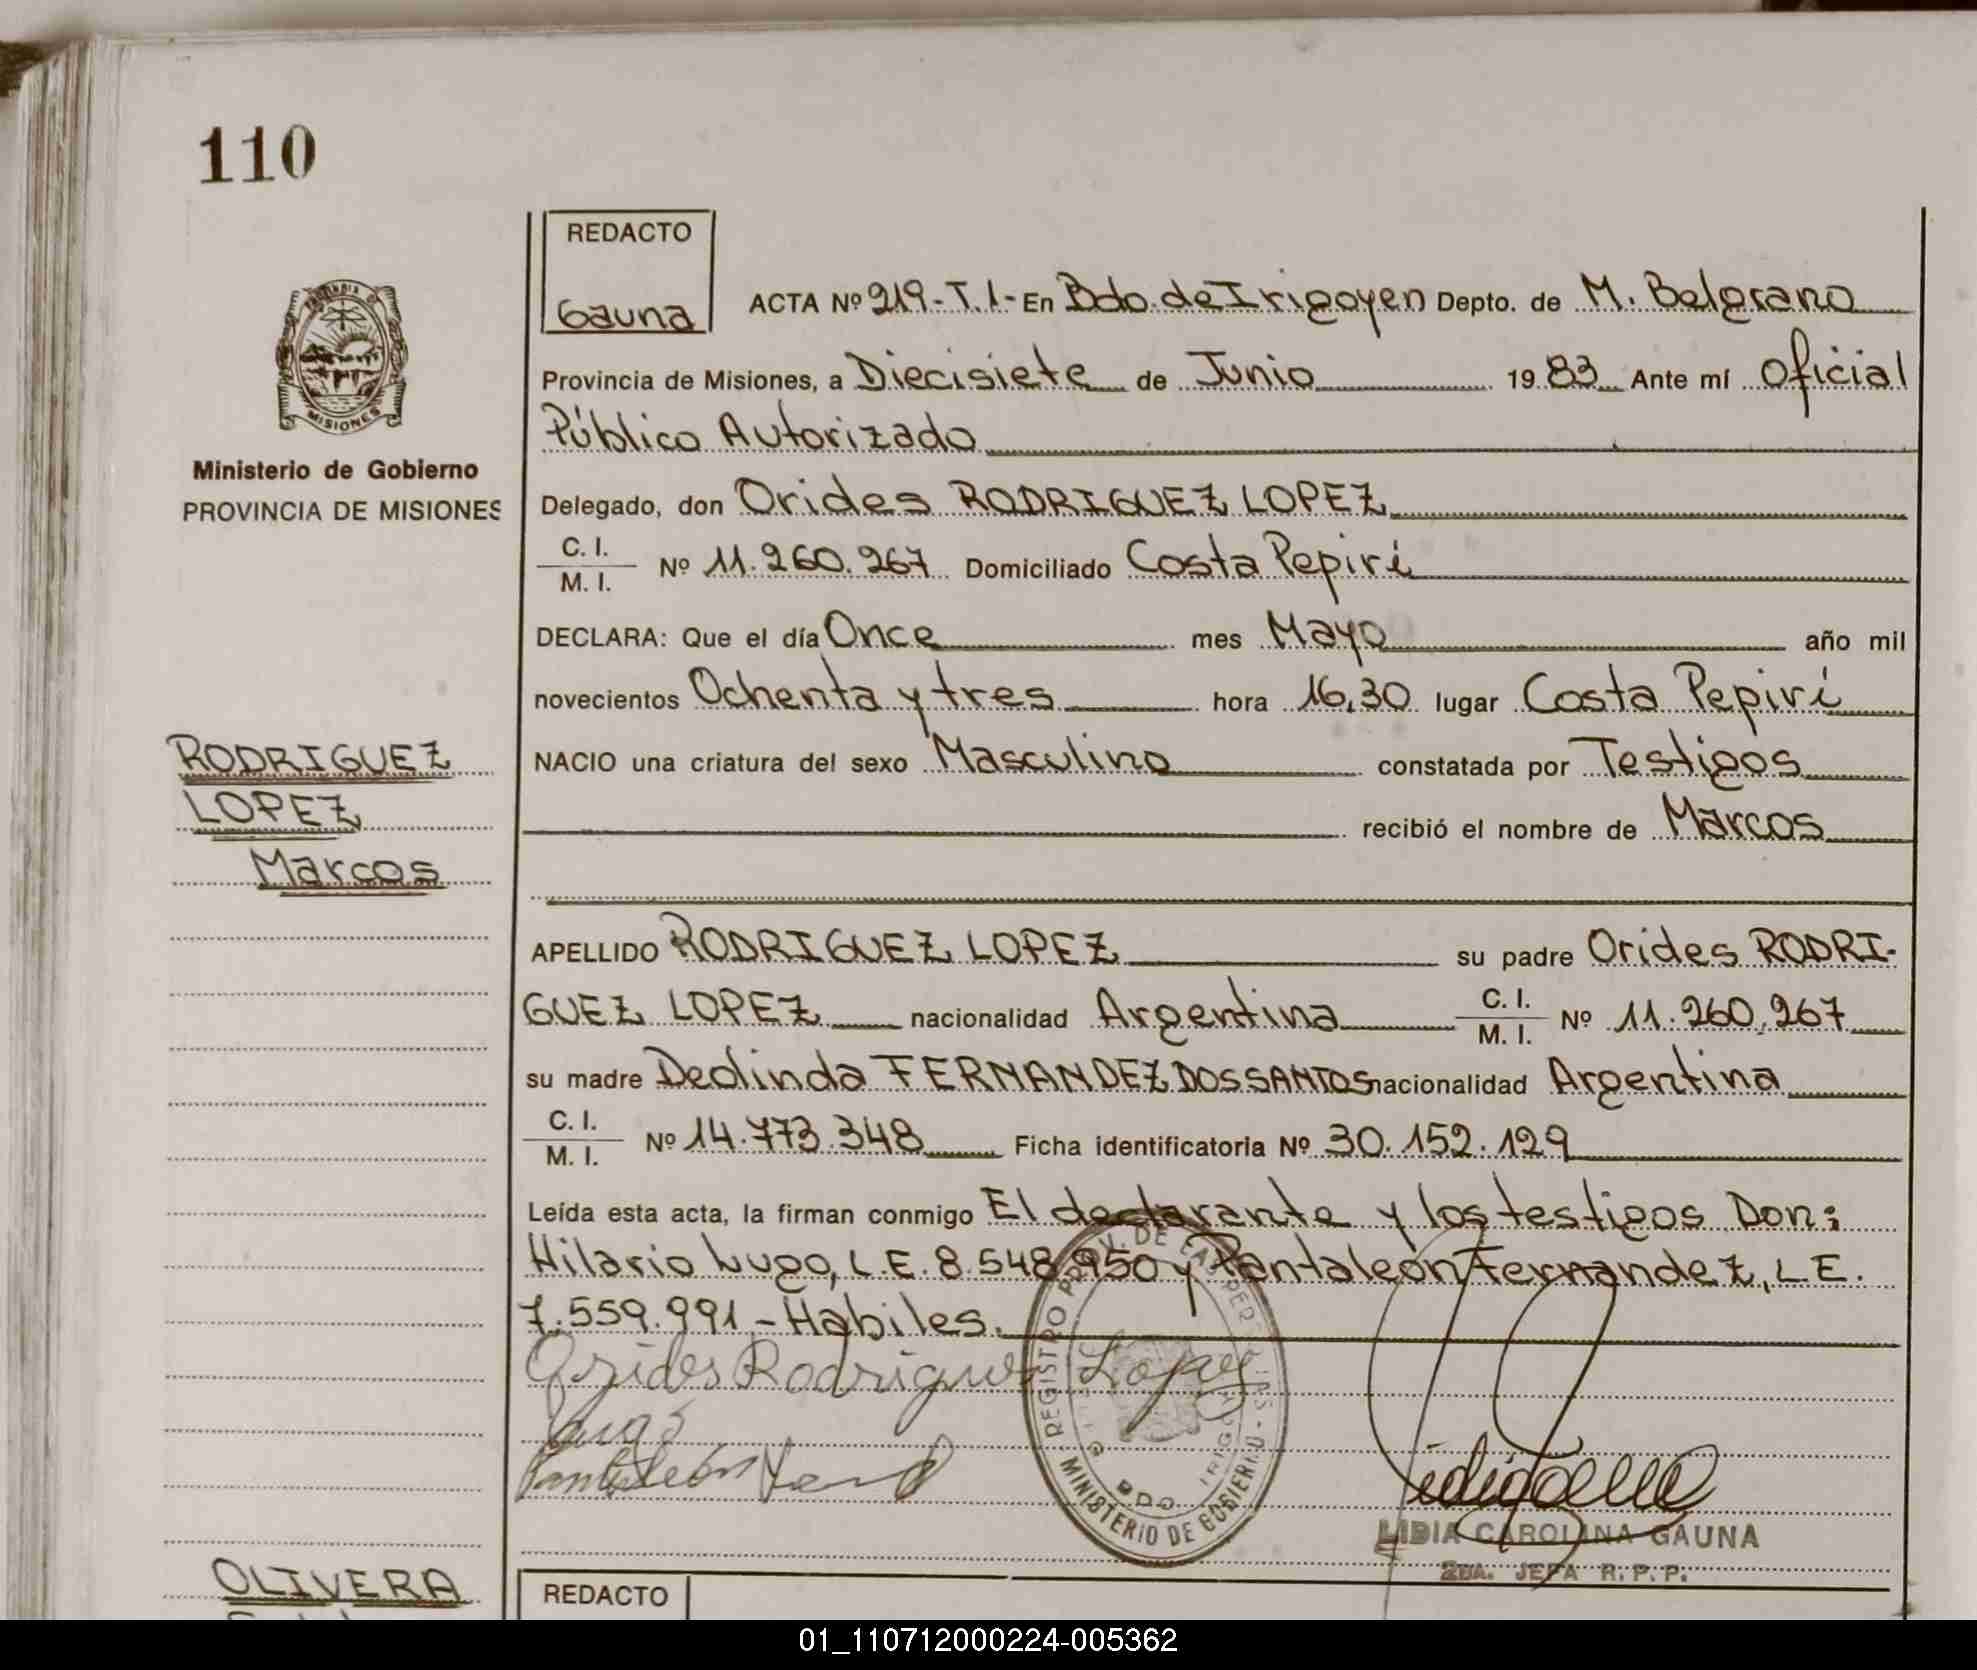 110
REDACTO
Gauna
ACTA Nº 219-T.1- En Bdo. de Irigoyen Depto. de M. Belgrano
Provincia de Misiones, a Diecisiete de Junio 1983 Ante mí Oficial
Público Autorizado
Delegado, don Orides RODRIGUEZ LOPEZ
C. I.
M. I. Nº 11.260.267 Domiciliado Costa Pepirí
DECLARA: Que el día Once mes Mayo año mil
novecientos Ochenta y tres hora 16,30 lugar Costa Pepirí
NACIO una criatura del sexo Masculino constatada por Testigos
recibió el nombre de Marcos
APELLIDO RODRIGUEZ LOPEZ su padre Orides RODRI-
GUEZ LOPEZ nacionalidad Argentina C. I. M. I. Nº 11.260.267
su madre Deolinda FERNANDEZ DOS SANTOS nacionalidad Argentina
C. I.
M. I. Nº 14.773.348 Ficha identificatoria Nº 30.152.129
Leída esta acta, la firman conmigo El declarante y los testigos Don:
Hilario Lugo, L.E. 8.548.950 y Pantaleón Fernandez, L.E.
7.559.991 - Habiles.
Orides Rodriguez Lopez
Lugo
Pantaleón
REGISTRO PROV. DE LAS PERSONAS
MINISTERIO DE GOBIERNO
BDO. IRIGOYEN
LIDIA CAROLINA GAUNA
2DA. JEFA R.P.P.
PROVINCIA DE
MISIONES
Ministerio de Gobierno
PROVINCIA DE MISIONES
RODRIGUEZ
LOPEZ
Marcos
OLIVERA
REDACTO
01_110712000224-005362